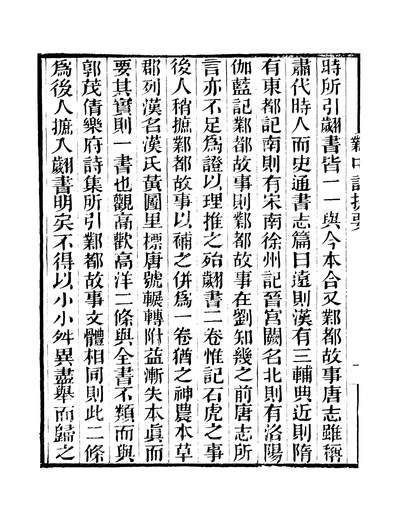 鄴中記提要
一
時所引翽書皆一一與今本合又鄴都故事唐志雖稱
肅代時人而史通書志篇曰遠則漢有三輔典近則隋
有東都記南則有宋南徐州記晉宮闕名北則有洛陽
伽藍記鄴都故事則鄴都故事在劉知幾之前唐志所
言亦不足爲證以理推之殆翽書二卷惟記石虎之事
後人稍摭鄴都故事以補之併爲一卷猶之神農本草
郡列漢名漢氏黃圖里標唐號輾轉附益漸失本真而
要其實則一書也觀高歡高洋二條與全書不類而與
郭茂倩樂府詩集所引鄴都故事文體相同則此二條
爲後人摭入翽書明矣不得以小小舛異盡舉而歸之